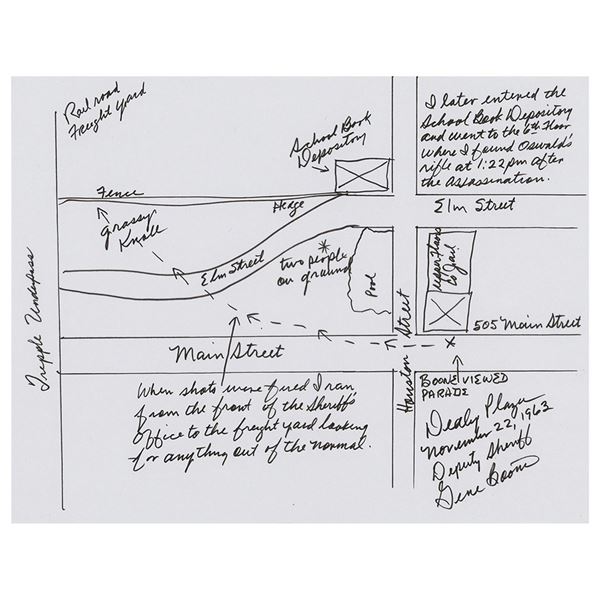 Railroad
Freight yard
School Book
Depository
I later entered the
School Book Depository
and went to the 6th Floor
where I found Oswald's
rifle at 1:22pm after
the assassination.
Fence
Hedge
Elm Street
Grassy
Knoll
Elm Street
two people
on ground
Pool
upper floors
to Jail
Tripple Underpass
Houston Street
505 Main Street
Main Street
When shots were fired I ran
from the front of the Sheriff's
Office to the freight yard looking
for anything out of the normal.
BOONE VIEWED
PARADE
Dealy Plaza
November 22, 1963
Deputy Sheriff
Gene Boone